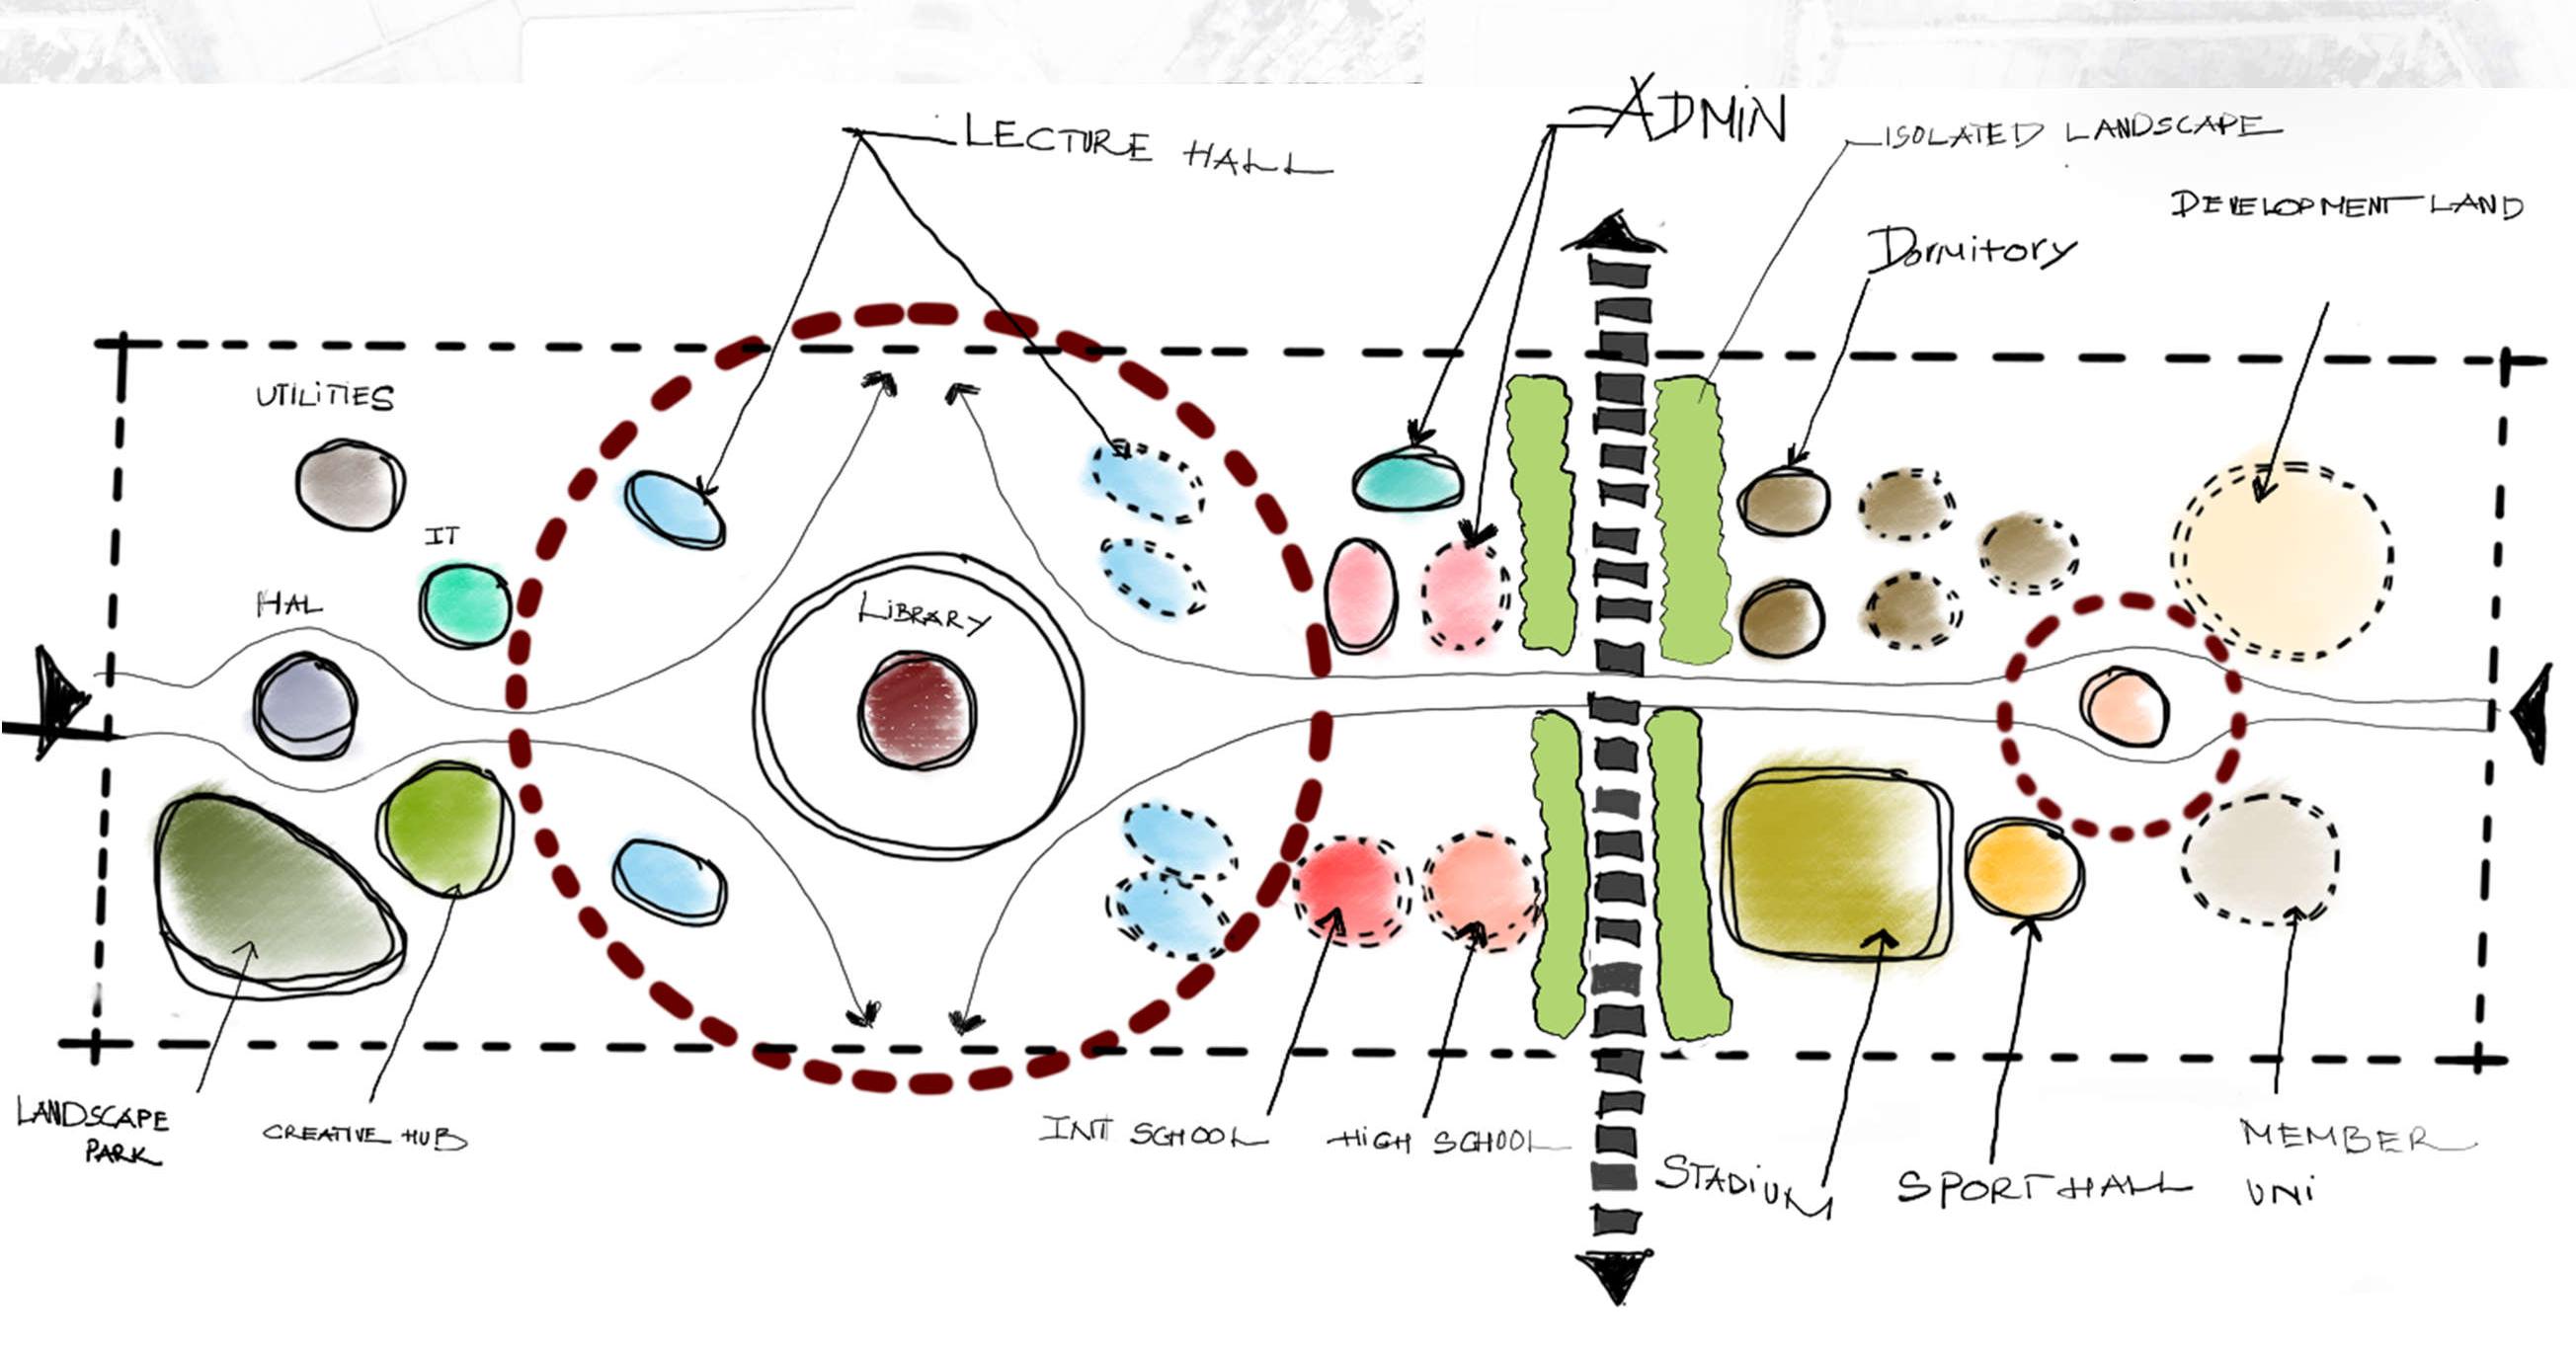 ADMIN
LECTURE HALL
ISOLATED LANDSCAPE
DEVELOPMENT LAND
Dormitory
UTILITIES
IT
HAL
LIBRARY
LANDSCAPE
PARK
CREATIVE HUB
INT SCHOOL
HIGH SCHOOL
STADIUM
SPORT HALL
MEMBER
UNI